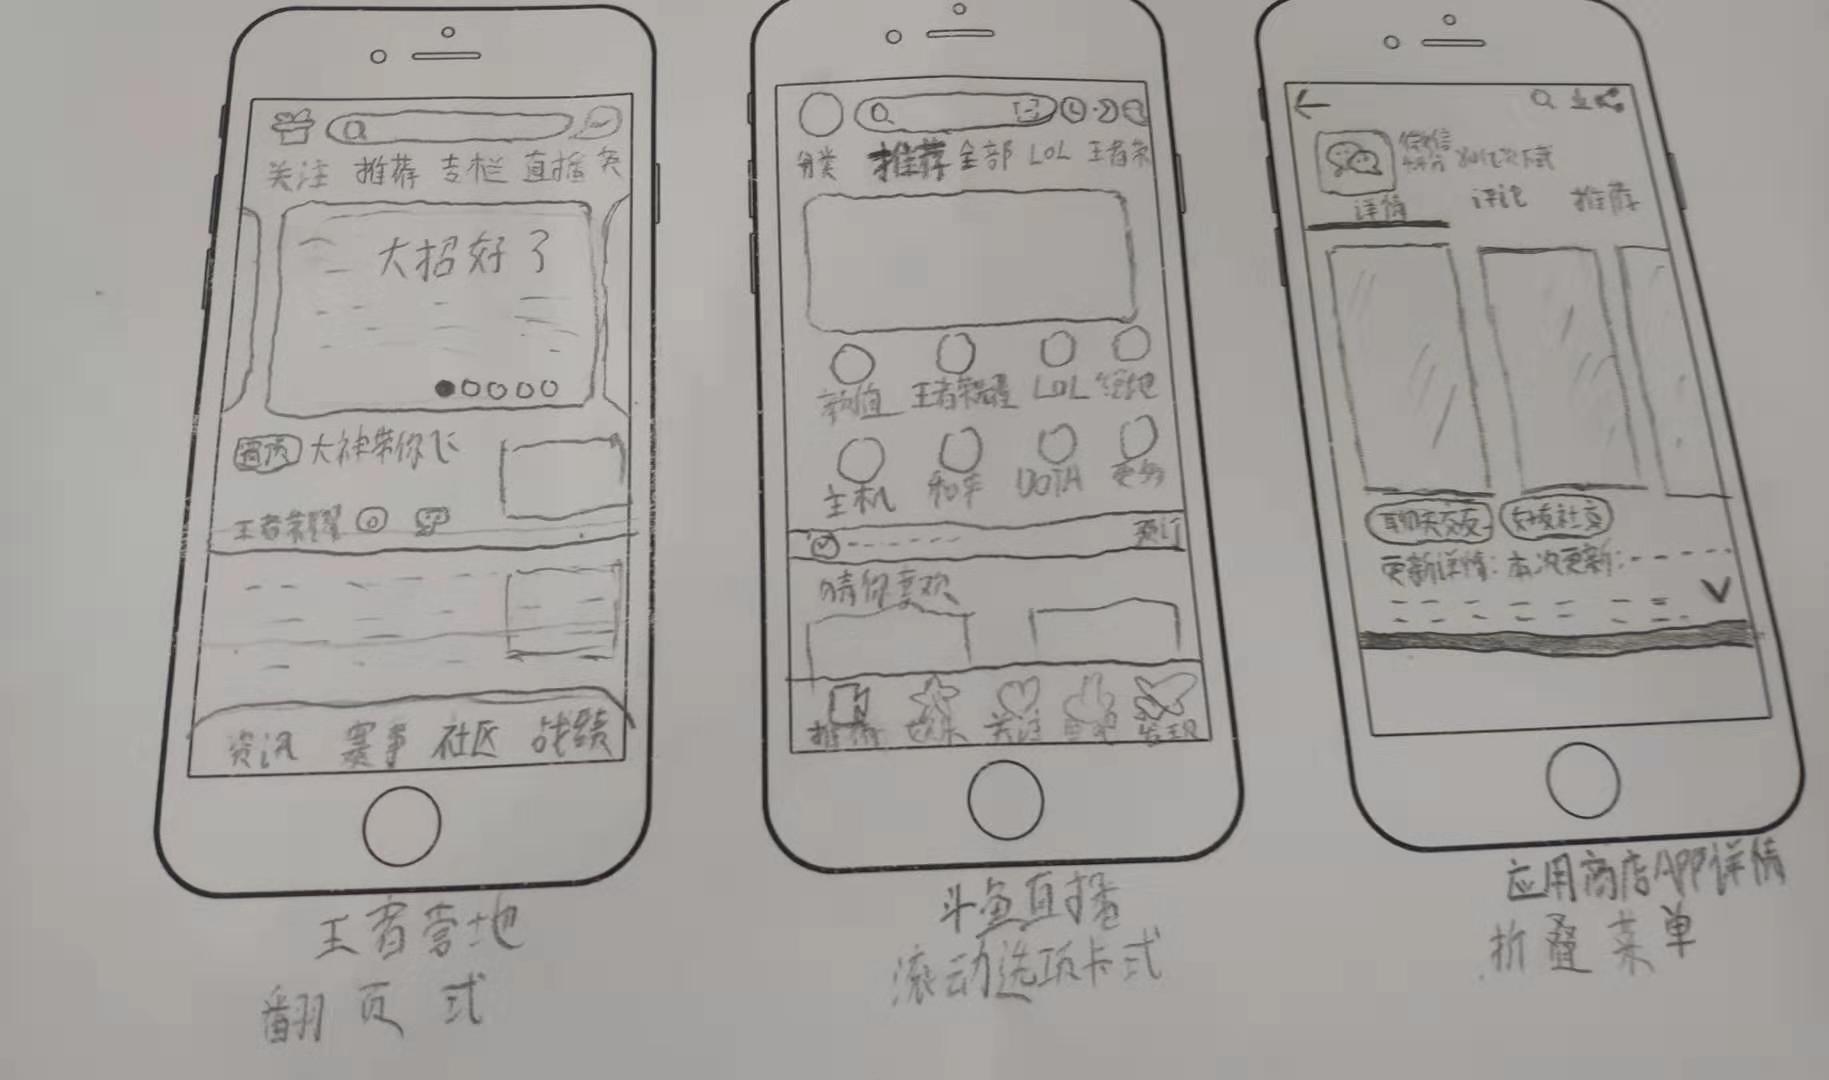 关注 推荐 专栏 直播 英
大招好了
大神带你飞
王者荣耀
资讯 赛事 社区 战绩
王者营地
翻页式
分类 推荐 全部 LOL 王者荣
颜值 王者荣耀 LOL 绝地
主机 和平 DOTA 更多
预订
猜你喜欢
推荐 娱乐 关注 发现
斗鱼直播
滚动选项卡式
微信
详情 评论 推荐
聊天交友 好友社交
更新详情：本次更新：
应用商店APP详情
折叠菜单